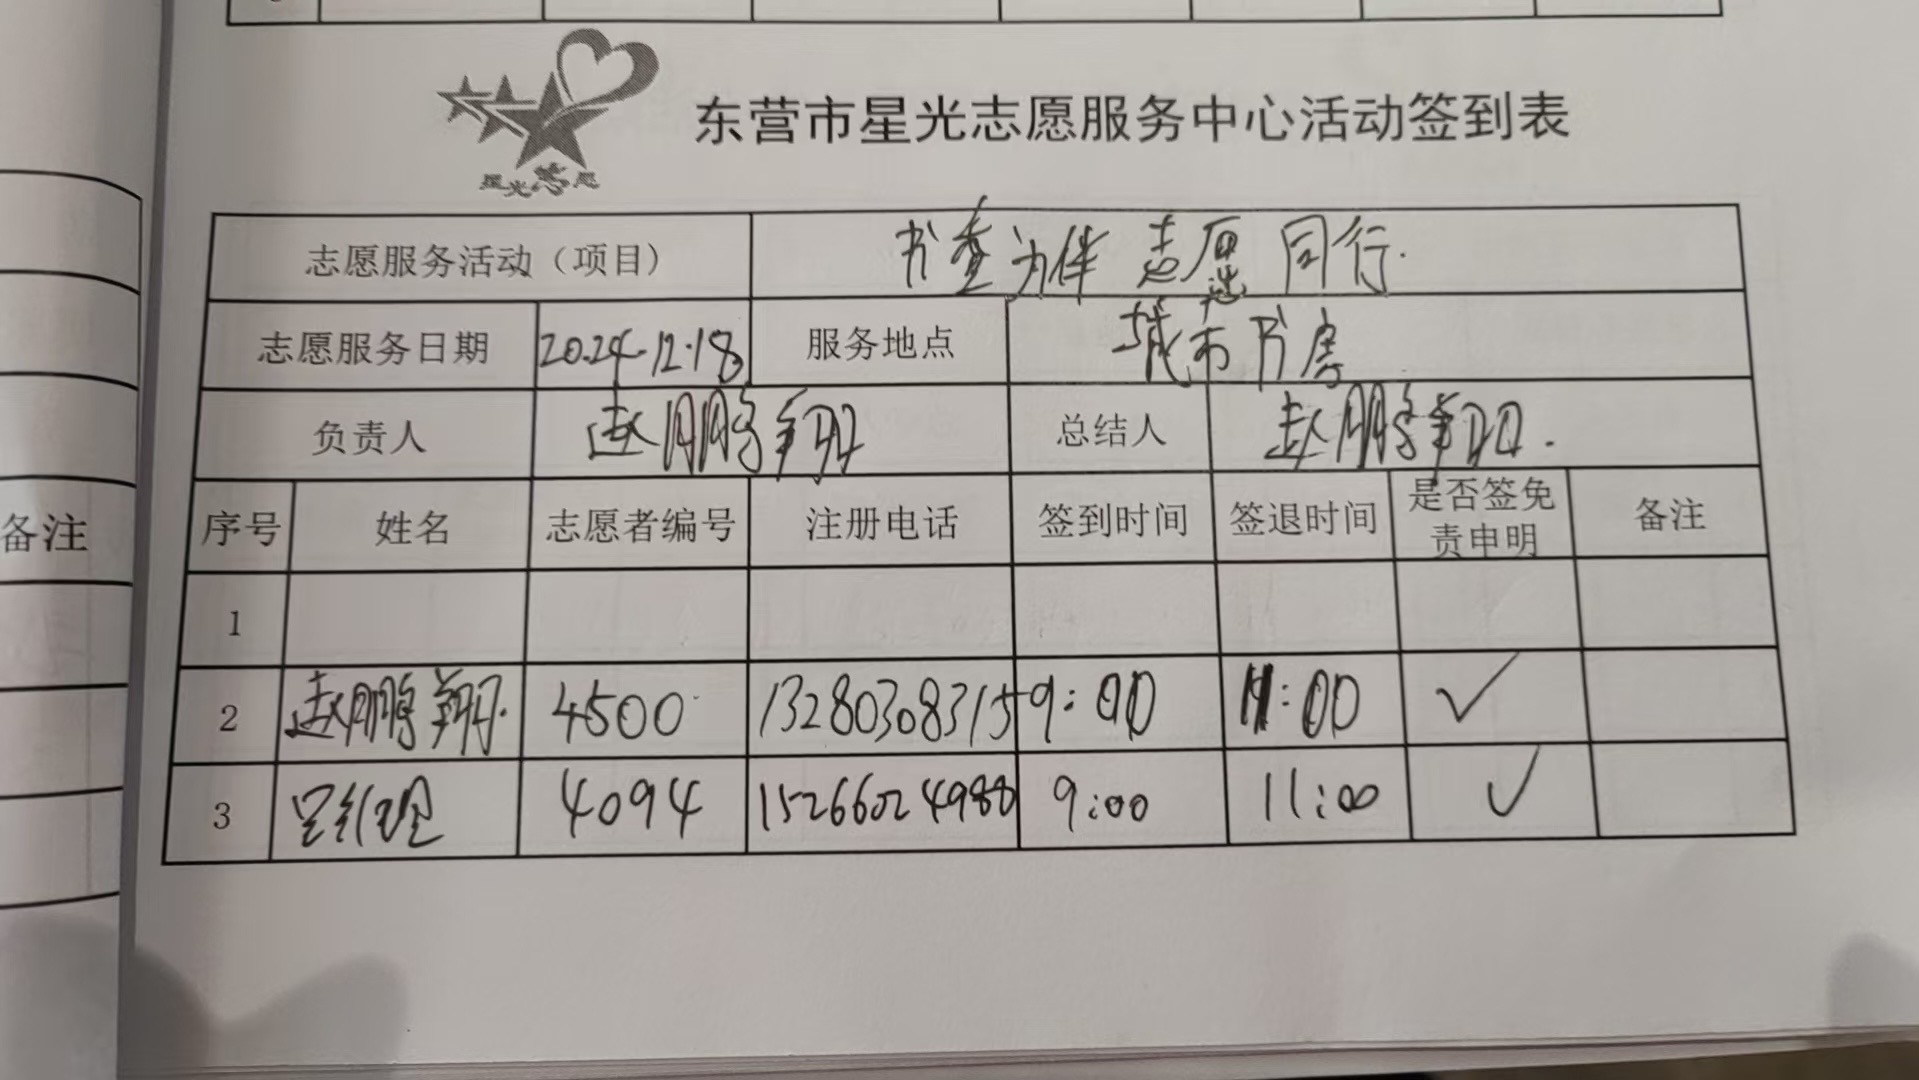 东营市星光志愿服务中心活动签到表
星光志愿
志愿服务活动（项目） 书香为伴 志愿同行.
志愿服务日期 2024.12.18 服务地点 城市书房
负责人 赵鹏翔 总结人 赵鹏翔.
序号 姓名 志愿者编号 注册电话 签到时间 签退时间 是否签免责申明 备注
1
2 赵鹏翔. 4500 13280308315 9:00 11:00 ✓
3 4094 15266024988 9:00 11:00 ✓
备注